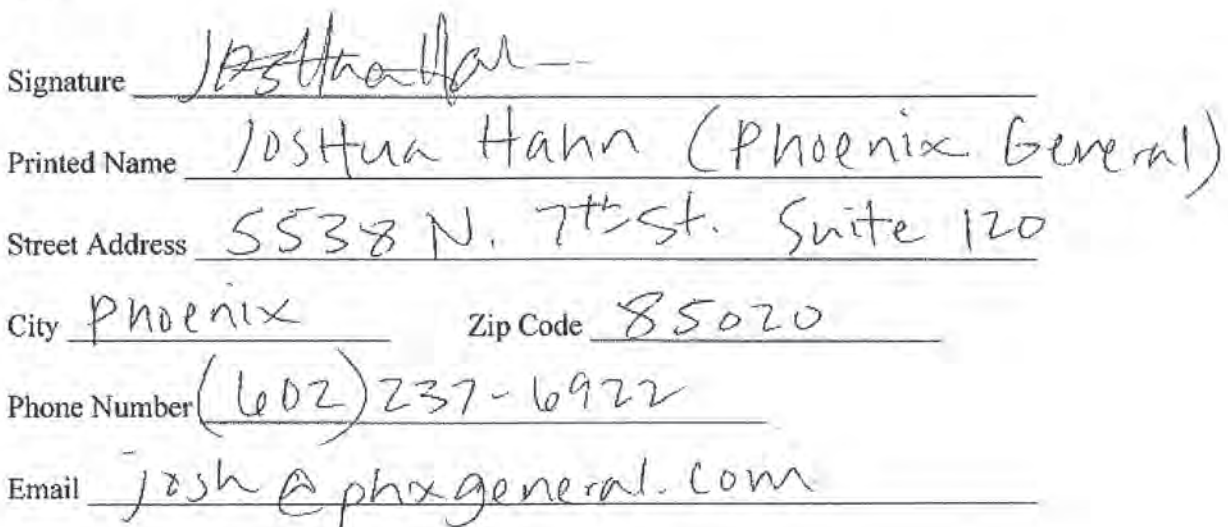 Signature Joshua Hah
Printed Name Joshua Hahn (Phoenix General)
Street Address 5538 N. 7th St. Suite 120
City Phoenix Zip Code 85020
Phone Number (602) 237-6922
Email josh@phxgeneral.com